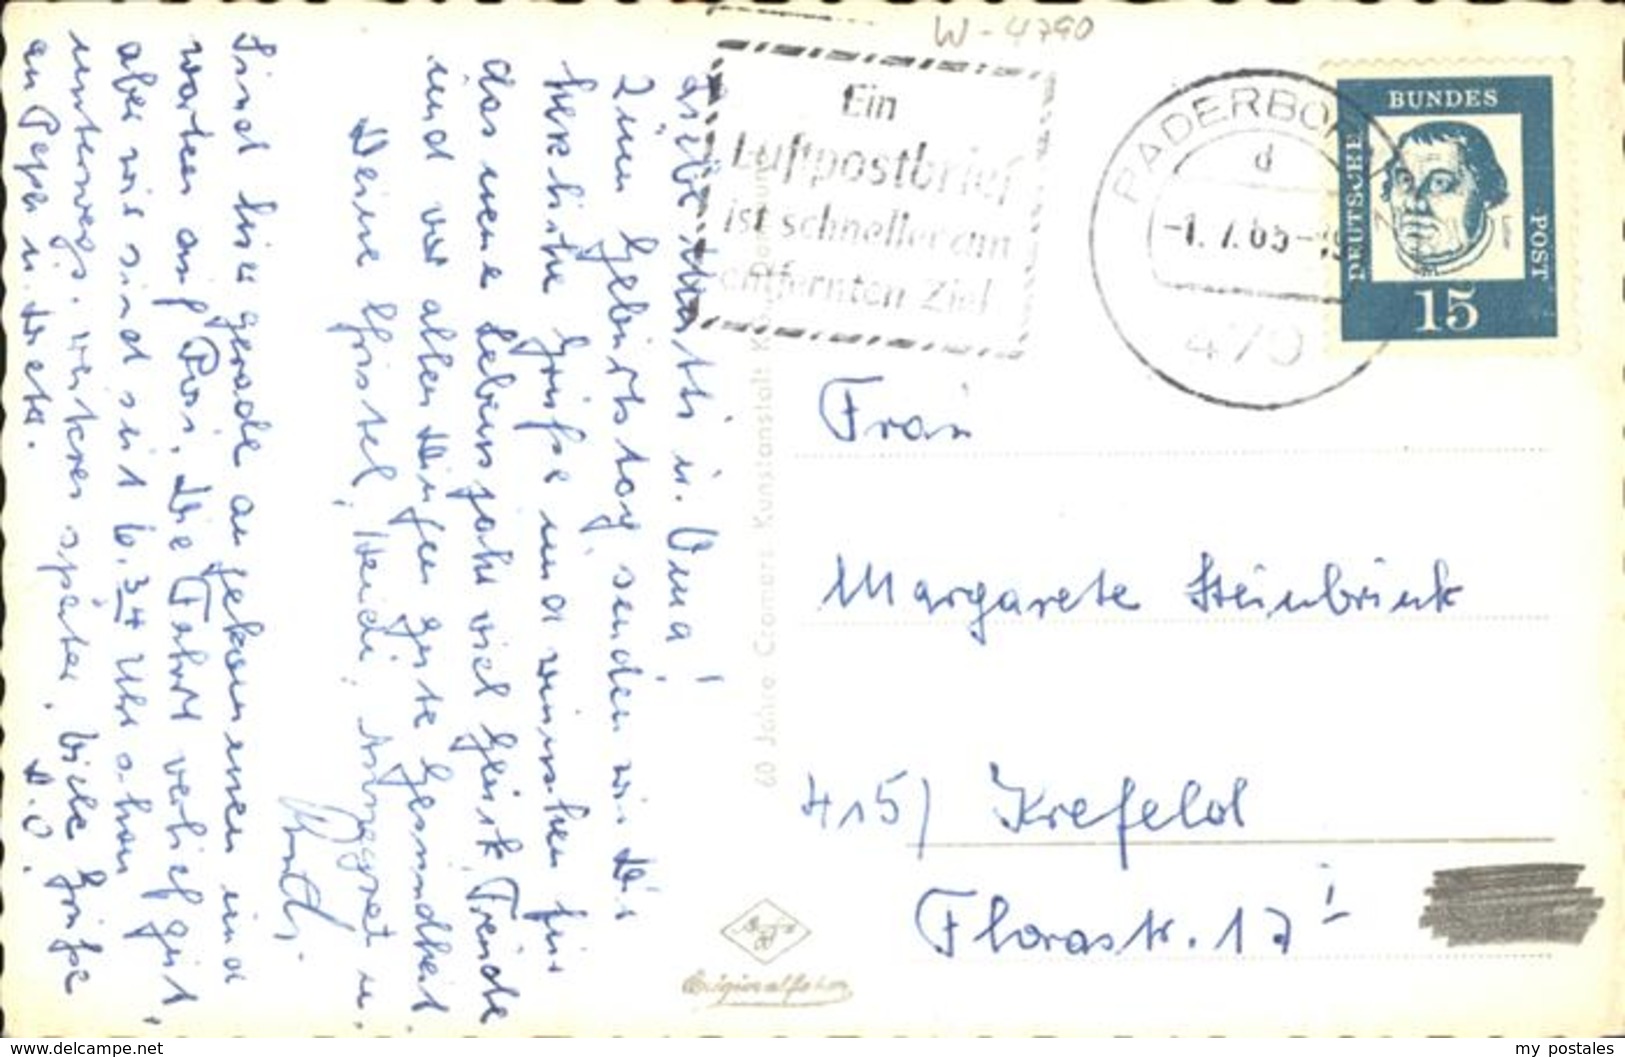 W-4790
Ein
Luftpostbrief
ist schneller am
entfernten Ziel
PADERBORN
d
-1.7.65-19
479
BUNDES
DEUTSCHE
POST
15
Liebe Mutti u. Oma!
Zum Geburtstag senden wir Dir
herzliche Grüße und wünschen für
das neue Lebensjahr viel Glück, Freude
und vor allen Dingen gute Gesundheit.
Deine Christel, Heidi, Annegret u.
Sind hier gerade angekommen und
warten auf Rosi. Die Fahrt verlief gut,
aber wir sind seit 6.34 Uhr schon
unterwegs. weiteres später. Viele Grüße
an Papa u. Dieter. D.O.
60 Jahre Cramers Kunstanstalt
Frau
Margarete Steinbrink
415) Krefeld
Florastr. 17 I
Originalfoto
my-delcampe.net
my postales